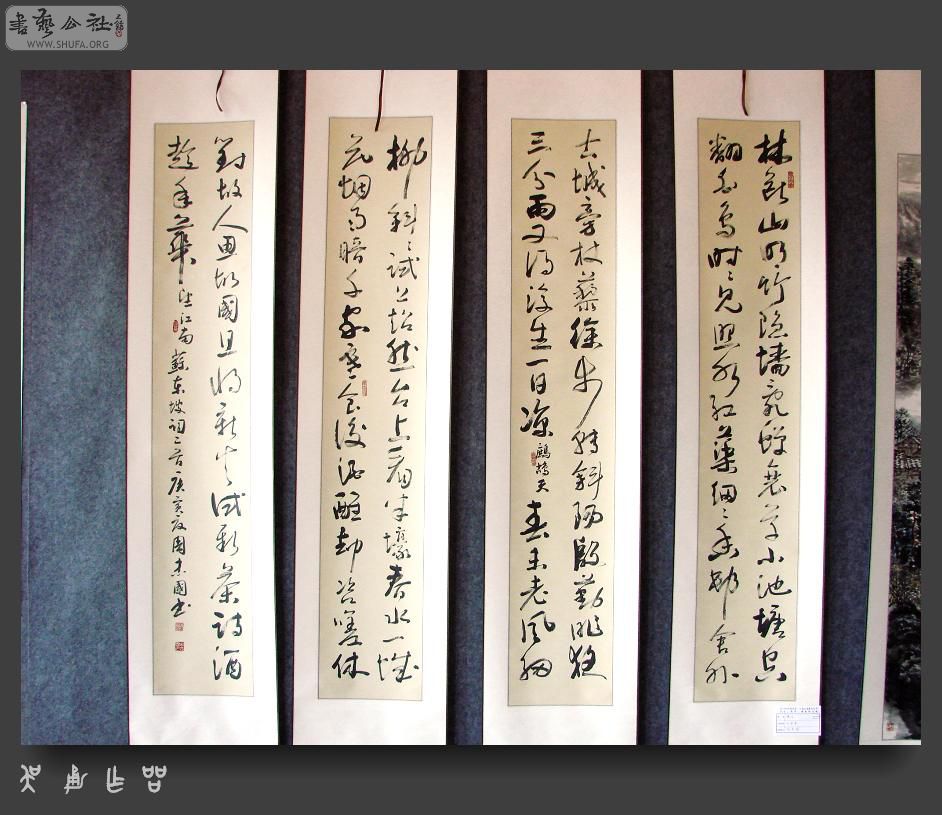 書藝公社
WWW.SHUFA.ORG
林斷山明竹隱墻亂蟬衰草小池塘空
翻白鳥時時見照水紅蕖細細香村舍外
古城旁杖藜徐步轉斜陽殷勤昨夜
三分雨又得浮生一日涼 鷓鴣天 春未老風細
柳斜斜試上超然台上看半壕春水一城
花烟雨暗千家寒食後酒醒却咨嗟休
對故人思故國且將新火試新茶詩酒
趁年華 望江南 蘇東坡詞二首 庚寅夏周國书